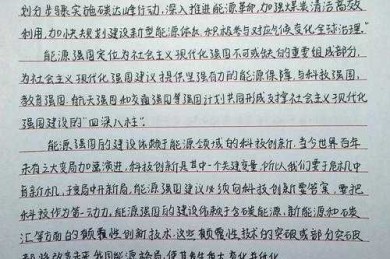 划分步骤实施碳达峰行动,深入推进能源革命,加强煤炭清洁高效
利用,加快规划建设新型能源体系,积极参与对应气候变化全球治理。”
能源强国定位为社会主义现代化强国不可或缺的重要组成部分,
为社会主义现代化强国建设提供坚强有力的能源保障,与科技强国,
教育强国,航天强国和交通强国等强国计划共同形成支撑社会主义现代化
强国建设的“四深八柱”。
能源强国的建设依赖于能源领域的科技创新,当今世界百年
未有之大变局加速演进,科技创新是其中一个关键变量,所以我们要于危机中
育新机,于变局中开新局,能源强国建设必须向科技创新要答案,要把
科技作为第一动力,能源强国的建设依赖于含碳能源,新能源和碳
汇等方面的颠覆性创新技术,这些颠覆性技术的突破或部分突破